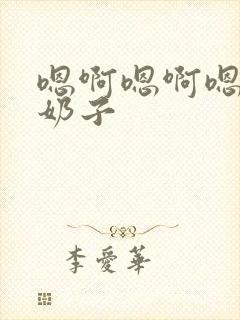 嗯啊嗯啊嗯
奶子
李爱华